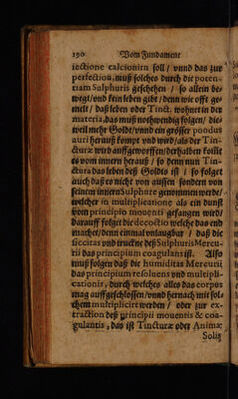 190 Vom Fundament
iectione calcionirn soll / vnnd das zur
perfection, muß solches durch die poten-
tiam Sulphuris geschehen / so allein be-
wegt/vnd kein leben gibt/denn wie offt ge-
melt / daß leben oder Tinct. wohnet in der
materia, das muß nothwendig folgen/ die-
weil mehr Goldt/vnnd ein grösser pondus
auri herauß kompt vnd wird/als der Tin-
cturæ wird auffgeworffen/derhalben sollt
es vom innern herauß / so denn nun Tin-
ctura das leben deß Goldts ist / so folget
auch daß es nicht von aussen sondern von
seinem innern Sulphure genommen werde/
welcher in multiplicatione als ein dunst
vom principio mouenti gefangen wird/
darauff folget die decoctio welche das end
machet/denn einmal onlaugbar / daß die
siccitas vnd truckne deß Sulphuris Mercu-
rii das principium coagulans ist. Also
muß folgen daß die humiditas Mercurii
das principium resoluens vnd multipli-
cationis, durch welches alles das corpus
mag auffgeschlossen/vnnd hernach mit sol-
chem multiplicirt werden / oder zur ex-
traction deß principii mouentis & coa-
gulantis, das ist Tincturæ oder Animæ
Solis